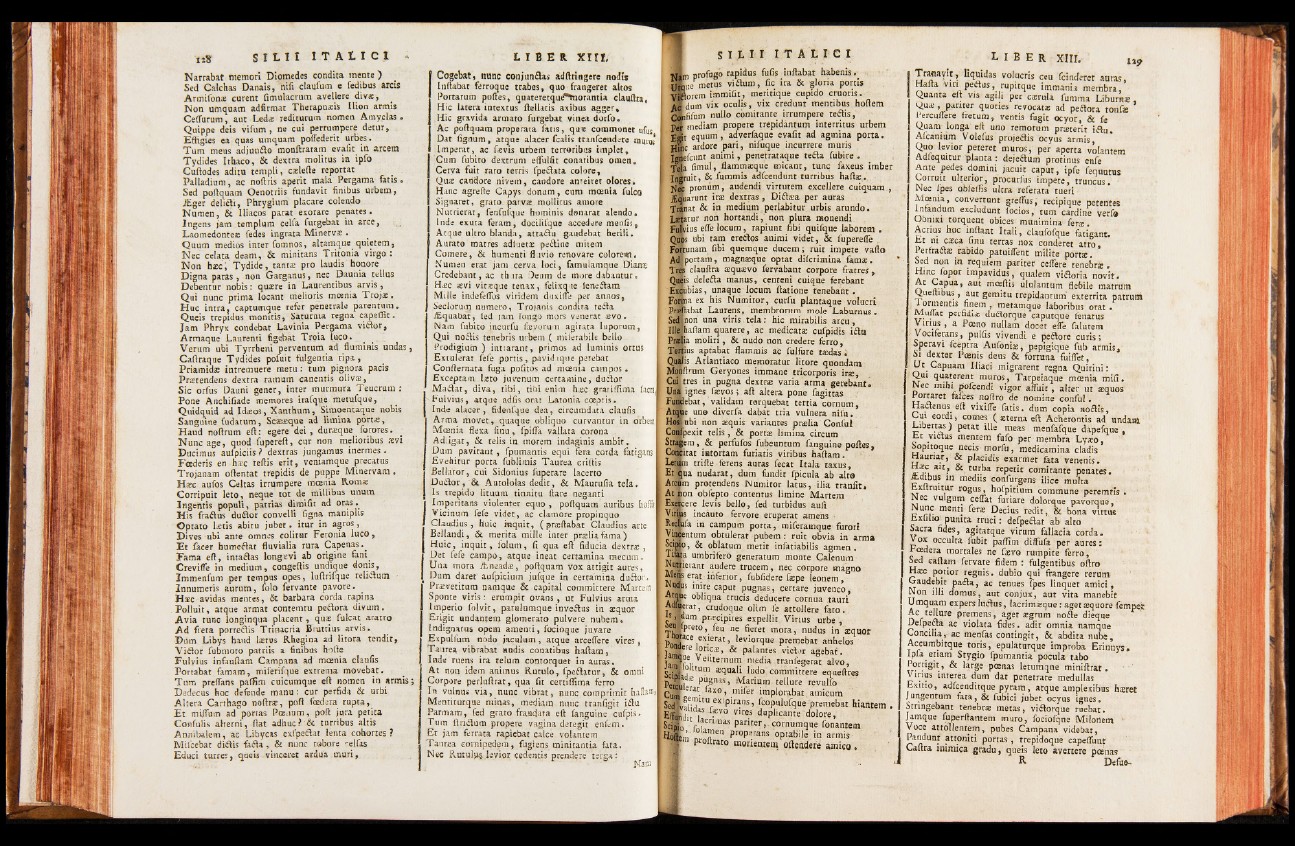 128 SILII ITALICI
Narrabat memori Diomedes condita mente)
Sed Calchas Danais, niſi clauſum e ſedibus arcis
Armiſonæ curent ſimulacrum avellere divæ,
Non umquam adfirmat Therapnæis Ilion armis
Ceſſurum, aut Ledæ rediturum nomen Amyclas.
Quippe deis viſum, ne cui perrumpere detur,
Effigies ea quas umquam poſſederit urbes.
Tum meus adjuncto monſtraram evaſit in arcem
Tydides Ithaco, & dextra molitus in ipſo
Cuſtodes aditu templi, cæleſte reportat
Palladium, ac noſtris aperit mala Pergama fatis.
Sed poſtquam Oenotriis fundavit finibus urbem,
Æger delicti, Phrygium placare colendo
Numen, & Iliacos parat exorare penates.
Ingens jam templum celſa ſurgebat in arce,
Laomedonteæ ſedes ingrata Minervæ.
Quum medios inter ſomnos, altamque quietem,
Nec celata deam, & minitans Tritonia virgo:
Non hæc, Tydide, tantæ pro laudis honore
Digna paras, non Garganus, nec Daunia tellus
Debentur nobis: quære in Laurentibus arvis,
Qui nunc prima locant melioris mœnia Trojæ.
Huc intra, captumque refer penetrale parentum.
Queis trepidus monitis, Saturnia regna capeſſit.
Jam Phryx condebat Lavinia Pergama victor,
Armaque Laurenti figebat Troia luco.
Verum ubi Tyrrheni perventum ad fluminis undas,
Caſtraque Tydides poſuit fulgentia ripa,
Priamidæ intremuere metu: tum pignora pacis
Prætendens dextra ramum canentis olivæ,
Sic orſus Dauni gener, inter murmura Teucrum:
Pone Anchiſiade memores iraſque metuſque,
Quidquid ad Idæos, Xanthum, Simoentaque nobis
Sanguine ſudatum, Scææque ad limina portæ,
Haud noſtrum eſt: egere dei, duræque ſorores.
Nunc age, quod ſupereſt, cur non melioribus ævi
Ducimus auſpiciis? dextras jungamus inermes.
Fœderis en hæc teſtis erit, veniamque precatus
Trojanam oſtentat trepidis de puppe Minervam.
Hæc auſos Celtas irrumpere mœnia Romæ
Corripuit leto, neque tot de millibus unum
Ingentis populi, patrias dimiſit ad oras.
His fractus ductor convelli ſigna maniplis
Optato lætis abitu jubet. itur in agros,
Dives ubi ante omnes colitur Feronia luco,
Et ſacer humectat fluvialia rura Capenas.
Fama eſt, intactas longævi ab origine fani
Creviſſe in medium, congeſtis undique donis,
Immenſum per tempus opes, luſtriſque relictum
Innumeris aurum, ſolo ſervante pavore.
Hæc avidas mentes, & barbara corda rapina
Polluit, atque armat contemtu pectora divum.
Avia tunc longinqua placent, quæ fulcat aratro
Ad freta porrectis Trinacria Bruttius arvis.
Dum Libys haud lætus Rhegina ad litora tendit,
Victor ſubmoto patriis a finibus hoſte
Fulvius infauſtam Campana ad mœnia clauſis
Portabat famam, miſeriſque extrema movebat.
Tum preſſans paſſim cuicumque eſt nomen in armis;
Dedecus hoc defende manu: cur perfida & urbi
Altera Carthago noſtræ, poſt fœdera rupta,
Et miſſum ad portas Pœnum, poſt jura petita
Conſulis alterni, ſtat adhuc? & turribus altis
Annibalem, ac Libycas exſpectat lenta cohortes?
Miſcebat dictis facta, & nunc robore celſas
Educi turres, queis vinceret ardua muri,
LIBER XIII.
Cogebat, nunc conjunctas adſtringere nodis
Inſtabat ferroque trabes, quo frangeret altos
Portarum poſtes, quateretque morantia clauſtra,
Hic latera intextus ſtellatis axibus agger,
Hic gravida armato ſurgebat vinea dorſo.
Ac poſtquam properata ſatis, quæ commonet uſus,
Dat ſignum, atque alacer ſcalis tranſcendere muros
Imperat, ac ſævis urbem terroribus implet,
Cum ſubito dextrum effulſit conatibus omen.
Cerva fuit raro terris ſpectata colore,
Quæ candore nivem, candore anteiret olores.
Hanc agreſte Capys donum, cum mœnia ſulco
Signaret, grato parvæ mollitus amore
Nutrierat, ſenſuſque hominis donarat alendo.
Inde exuta feram, dociliſque accedere menſis,
Atque ultro blanda, attactu gaudebat herili.
Aurato matres adſuetæ pectine mitem
Comere, & humenti fluvio renovare colorem.
Numen erat jam cerva loci, famulamque Dianæ
Credebant, ac thura Deum de more dabantur.
Hæc ævi vitæque tenax, felixque ſenectam
Mille indefeſſos viridem duxiſſe per annos,
Seclorum numero, Trojanis condita tecta
Æquabat, ſed jam longo mors venerat ævo.
Nam ſubito incurſu ſævorum agitata luporum,
Qui noctis tenebris urbem (miſerabile bello
Prodigium) intrarant, primos ad luminis ortus
Extulerat ſeſe portis, pavidaque petebat
Conſternata fuga poſitos ad mœnia campos.
Exceptam læto juvenum certamine, ductor
Mactat, diva, tibi, tibi enim hæc gratiſſima ſacra,
Fulvius, atque adſis orat Latonia cœptis.
Inde alacer, fidenſque dea, circumdata clauſis
Arma movet, quaque obliquo curvantur in orbem
Mœnia flexa ſinu, ſpiſſa vallata corona
Adligat, & telis in morem indaginis ambit.
Dum pavitant, ſpumantis equi fera corda fatigans
Evehitur porta ſublimis Taurea criſtis
Bellator, cui Sidonius ſuperare lacerto
Ductor, & Autololas dedit, & Mauruſia tela.
Is trepido lituum tinnitu ſtare neganti
Imperitans violenter equo, poſtquam auribus hoſtis
Vicinum ſeſe videt, ac clamore propinquo
Claudius, huic inquit, (præſtabat Claudius arte
Bellandi, & merita mille inter prælia fama)
Huic, inquit, ſolum, ſi qua eſt fiducia dextræ,
Det ſeſe campo, atque ineat certamina mecum.
Una mora Æneadæ, poſtquam vox attigit aures,
Dum daret auſpicium juſque in certamina ductor.
Prævetitum namque & capital committere Martem
Sponte viris: erumpit ovans, ut Fulvius arma
Imperio ſolvit, patulumque invectus in æquor
Erigit undantem glomerato pulvere nubem.
Indignatus opem amenti, ſocioque juvare
Expulſum nodo jaculum, atque acceſſere vires,
Taurea vibrabat nudis conatibus haſtam,
Inde ruens ira telum contorquet in auras.
At non idem animus Rutulo, ſpectator, & omni
Corpore perluſtrat, qua ſit certiſſima ferro
In vulnus via, nunc vibrat, nunc comprimit haſtam
Mentiturque minas, mediam nunc tranſigit ictu
Parmam, ſed grato fraudata eſt ſanguine cuſpis.
Tum ſtrictum propere vagina detegit enſem.
Et jam ferrata rapiebat calce volantem
Taurea cornipedem, fugiens minitantia fata.
Nec Rutulus levior cedentis prendere terga:
Nam
SILII ITALICI
Nam profugo rapidus fuſis inſtabat habenis.
Utque metus victum, ſic ira & gloria portis
Victorem immiſit, meritique cupido cruoris.
Ac dum vix oculis, vix credunt mentibus hoſtem
Confiſum nullo comitante irrumpere tectis,
Per mediam propere trepidantum interritus urbem
Egit equum, adverſaque evaſit ad agmina porta.
Hinc ardore pari, niſuque incurrere muris
Igneſcunt animi, penetrataque tecta ſubire.
Tela ſimul, flammæque micant, tunc ſaxeus imber
Ingruit, & ſummis adſcendunt turribus haſtæ.
Nec pronum, audendi virtutem excellere cuiquam,
Æquarunt iræ dextras, Dictæa per auras
Tranat & in medium perlabitur urbis arundo.
Lætatur non hortandi, non plura monendi
Fulvius eſſe locum, rapiunt ſibi quiſque laborem.
Quos ubi tam erectos animi videt, & ſupereſſe
Fortunam ſibi quemque ducem; ruit impete vaſto
Ad portam, magnæque optat diſcrimina famæ.
Tres clauſtra æquævo ſervabant corpore fratres,
Queis delecta manus, centeni cuique ferebant
Excubias, unaque locum ſtatione tenebant.
Forma ex his Numitor, curſu plantaque volucri
Præſtabat Laurens, membrorum mole Laburnus.
Sed non una viris tela: hic mirabilis arcu,
Ille haſtam quatere, ac medicatæ cuſpidis ictu
Prælia moliri, & nudo non credere ferro,
Tertius aptabat flammis ac ſulfure tædas.
Qualis Atlantiaco memoratur litore quondam
Monſtrum Geryones immane tricorporis iræ,
Cui tres in pugna dextræ varia arma gerebant.
Una ignes ſævos; aſt altera pone ſagittas
Fundebat, validam torquebat tertia cornum,
Atque uno diverſa dabat tria vulnera niſu.
Hos ubi non æquis variantes prælia Conſul
Conſpexit telis, & portæ limina circum
Stragem, & perfuſos ſubeuntum ſanguine poſtes,
Concitat intortam furiatis viribus haſtam.
Letum triſte ferens auras ſecat Itala taxus,
Et qua nudarat, dum fundit ſpicula ab alto
Arcum protendens Numitor latus, ilia tranſit.
At non obſepto contentus limine Martem
Exercere levis bello, ſed turbidus auſi
Virius incauto fervore eruperat amens
Recluſa in campum porta, miſeramque furori
Vincentum obtulerat pubem: ruit obvia in arma
Scipio, & oblatum metit inſatiabilis agmen.
Tifata umbrifero generatum monte Calenum
Nutrierant audere trucem, nec corpore magno
Mens erat inferior, ſubſidere ſæpe leonem,
Nudus inire caput pugnas, certare juvenco,
Atque obliqua trucis deducere cornua tauri
Adſuerat, crudoque olim ſe attollere facto.
Is, dum præcipites expellit Virius urbe,
Seu ſpreto, ſeu ne fieret mora, nudus in æquor
Thorace exierat, leviorque premebat anhelos
Pondere loricæ, & palantes victor agebat.
Jamque Veliternum media tranſegerat alvo,
Jam ſolitum æquali ludo committere equeſtres
Scipiadæ pugnas, Marium tellure revulſo
Perculerat ſaxo, miſer implorabat amicum
Cum gemitu expirans, ſcopuluſque premebat hiantem.
Sed validas ſævo vires duplicante dolore,
Effundit lacrimas pariter, cornumque ſonantem
Scipio, ſolamen properans optabile in armis
Hoſtem proſtrato morientem oſtendere amico.
LIBER XIII. 129
Tranavit, liquidas volucris ceu ſcinderet auras,
Haſta viri pectus, rupitque immania membra,
Quanta eſt vis agili per cærula ſumma Liburnæ,
Quæ, pariter quoties revocatæ ad pectora tonſæ
Percuſſere fretum, ventis fugit ocyor, & ſe
Quam longa eſt uno remorum præterit ictu.
Aſcanium Voleſus projectis ocyus armis,
Quo levior peteret muros, per aperta volantem
Adſequitur planta: dejectum protinus enſe
Ante pedes domini jacuit caput, ipſe ſequutus
Corruit ulterior, procurſus impete, truncus.
Nec ſpes obſeſſis ultra referata tueri
Mœnia, convertunt greſſus, recipique petentes
Infandum excludunt ſocios, tum cardine verſo
Obnixi torquent obices munimina ſera.
Acrius hoc inſtant Itali, clauſoſque fatigant.
Et ni cæca ſinu terras nox conderet atro,
Perfractæ rabido patuiſſent milite portæ.
Sed non in requiem pariter ceſſere tenebræ.
Hinc ſopor impavidus, qualem victoria novit.
At Capua, aut mœſtis ululantum flebile matrum
Queſtibus, aut gemitu trepidantum exterrita patrum
Tormentis finem, metamque laboribus orat.
Muſſat perfidiæ ductorque caputque ſenatus
Virius, a Pœno nullam docet eſſe ſalutem
Vociferans, pulſis vivendi e pectore curis;
Speravi ſceptra Auſoniæ, pepigique ſub armis,
Si dexter Pœnis deus & fortuna fuiſſet,
Ut Capuam Iliaci migrarent regna Quirini:
Qui quaterent muros, Tarpeiaque mœnia miſi.
Nec mihi poſcendi vigor affuit, alter ut æquos
Portaret faſces noſtro de nomine conſul.
Hactenus eſt vixiſſe ſatis. dum copia noctis,
Cui cordi, comes (æterna eſt Acherontis ad undam
Libertas) petat ille meas menſaſque dapeſque,
Et victus mentem fuſo per membra Lyæo,
Sopitoque necis morſu, medicamina cladis
Hauriat, & placidis exarmet fata venenis.
Hæc ait, & turba repetit comitante penates.
Ædibus in mediis conſurgens ilice multa
Exſtruitur rogus, hoſpitium commune peremtis.
Nec vulgum ceſſat furiare dolorque pavorque,
Nunc menti ſeræ Decius redit, & bona virtus
Exſilio punita truci: deſpectat ab alto
Sacra fides, agitatque virum fallacia corda.
Vox occulta ſubit paſſim diffuſa per aures:
Fœdera mortales ne ſævo rumpite ferro,
Sed caſtam ſervate fidem: fulgentibus oſtro
Hæc potior regnis. dubio qui frangere rerum
Gaudebit pacta, ac tenues ſpes linquet amici,
Non illi domus, aut conjux, aut vita manebit
Umquam expers luctus, lacrimæque: aget æquore ſemper
Ac tellure premens, aget ægrum nocte dieque
Deſpecta ac violata fides. adit omnia namque
Concilia, ac menſas contingit, & abdita nube,
Accumbitque toris, epulaturque improba Erinnys.
Ipſa etiam Stygio ſpumantia pocula tabo
Porrigit, & large pœnas letumque miniſtrat.
Virius interea dum dat penetrare medullas
Exitio, adſcenditque pyram, atque amplexibus hæret
Jungentum fata, & ſubici jubet ocyus ignes.
Stringebant tenebræ metas, victorque ruebat.
Jamque ſuperſtantem muro, ſocioſque Milonem
Voce attollentem, pubes Campana videbat,
Pandunt attoniti portas, trepidoque capeſſunt
Caſtra inimica gradu, queis leto avertere pœnas
R Defuo-